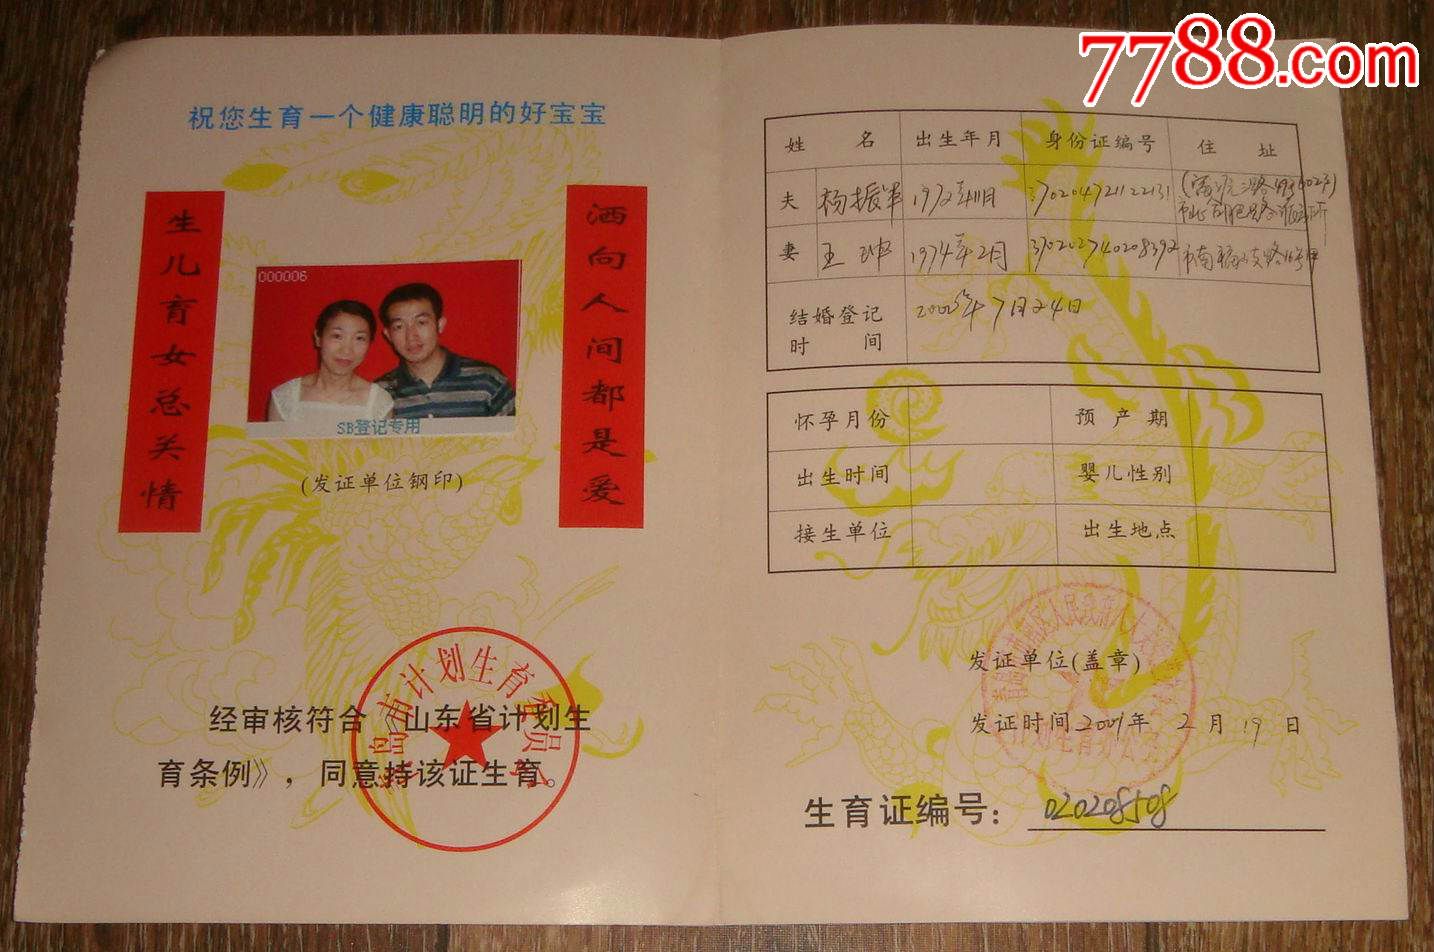 7788.com
祝您生育一个健康聪明的好宝宝
生儿育女总关情
洒向人间都是爱
000006
SB登记专用
(发证单位钢印)
青岛市计划生育委员会
经审核符合《山东省计划生
育条例》，同意持该证生育。
姓 名 出生年月 身份证编号 住 址
夫 杨振华 1972年11月
妻 王 1974年2月 市南
结婚登记时间 7月24日
怀孕月份 预产期
出生时间 婴儿性别
接生单位 出生地点
发证单位(盖章)
发证时间 2001年 2月19日
生育证编号： 020208508